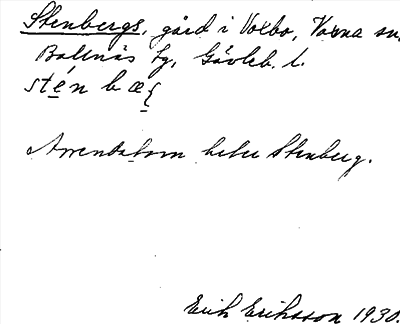 Stenbergs, gård i Voxbo, Voxna sn.
Bollnäs tg, Gävleb. l.
stén b æ
Arrendatorn heter Stenberg.
Erik Eriksson 1930.